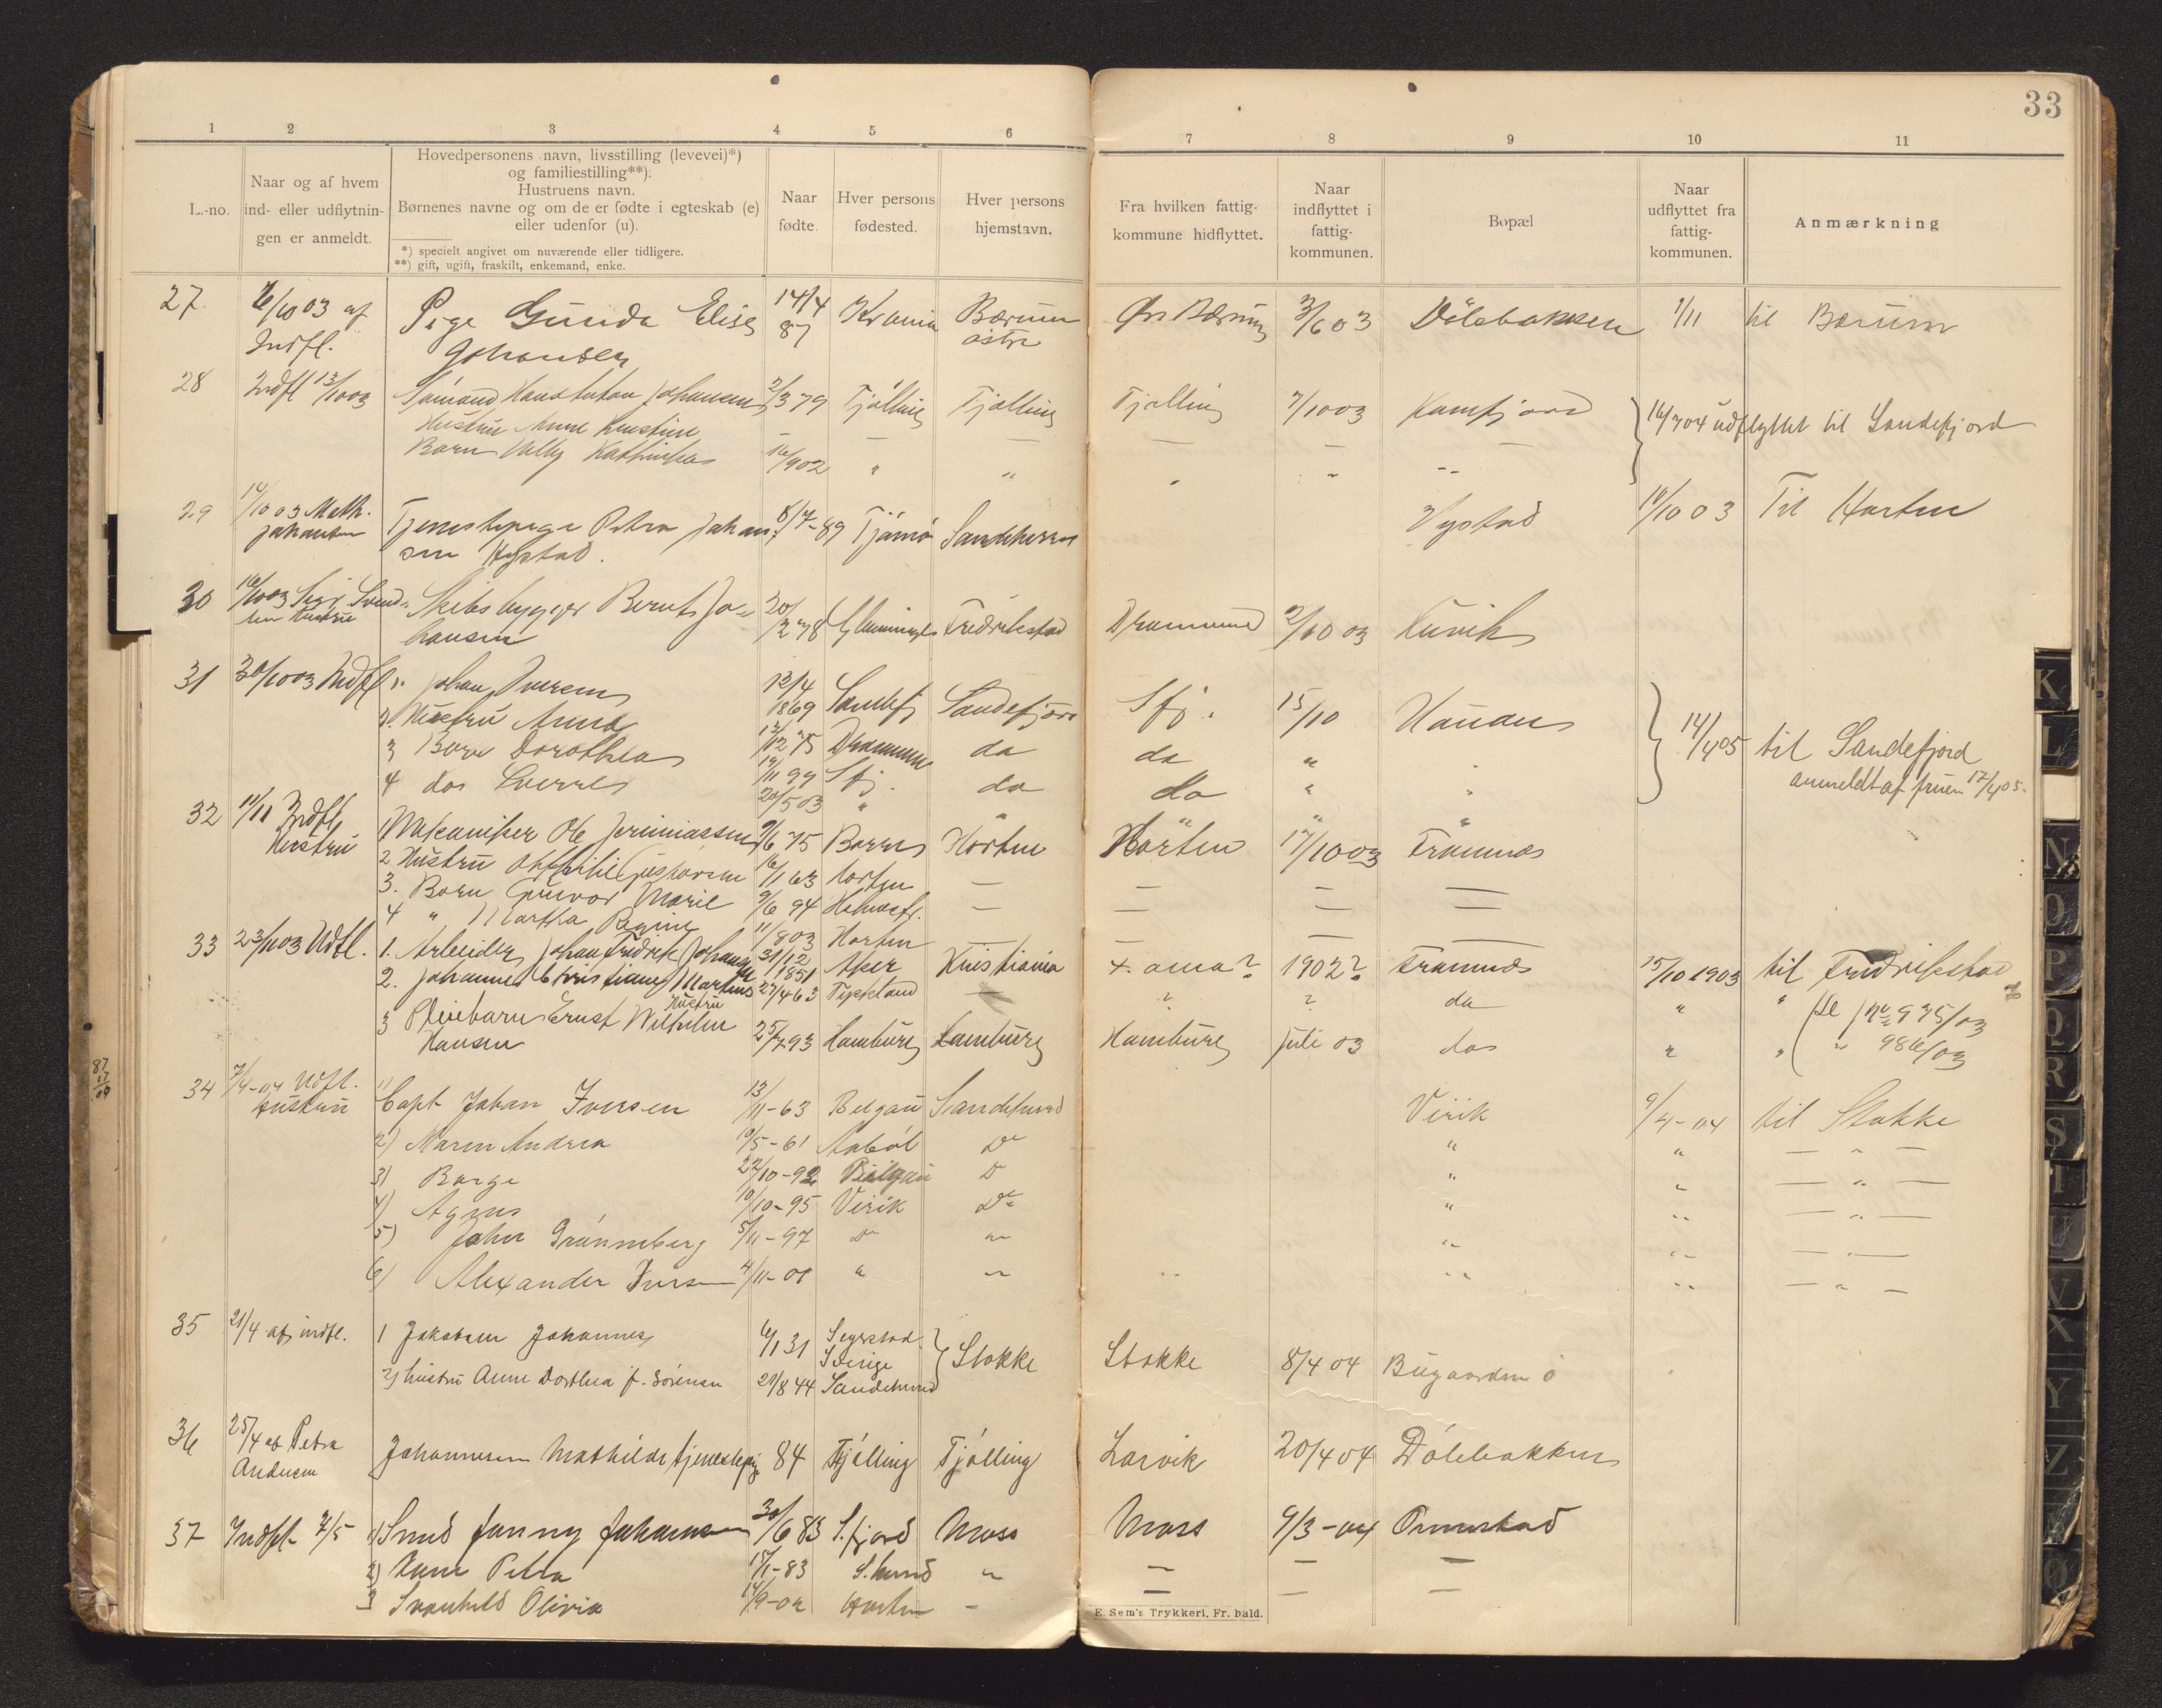 33
1 2 3 4 5 6 7 8 9 10 11
L.-no.
Naar og af hvem
ind- eller udflytnin-
gen er anmeldt.
Hovedpersonens navn, livsstilling (levevei)*)
og familiestilling**).
Hustruens navn.
Børnenes navne og om de er fødte i egteskab (e)
eller udenfor (u).
*) specielt angivet om nuværende eller tidligere.
**) gift, ugift, fraskilt, enkemand, enke.
Naar
fødte.
Hver persons
fødested.
Hver persons
hjemstavn.
Fra hvilken fattig-
kommune hidflyttet.
Naar
indflyttet i
fattig-
kommunen.
Bopæl
Naar
udflyttet fra
fattig-
kommunen.
Anmærkning
27. 6/10 03 af Pige Gunda Elise 14/4 Krania Bærum Øs Bærum 3/6 03 Dølebakken 1/11 til Bærum
Indfl. Johansen 87 østre
28 Indfl 13/10 03 Hans Anton Johansen 2/3 79 Tjølling Tjølling Tjølling 7/10 03 Kamfjord 16/7 04 udflyttet til Sandefjord
Hustru Anne Kristine — — — — — —
Barn Valby Kathinka /902 " " " " "
29 14/10 03 Math. Tjenestepige Petra Johan- 8/7-89 Tjømø Sandeherred Nystad 14/10 03 Til Horten
Johansen sen Nystad.
30 16/10 03 Svend- Skibsbygger Bernt Jo- 20/2 78 Glemminge Fredrikstad Drammen 2/10 03 Kuvik
sen Hustru hansen
31 30/10 03 Indfl 1. Johan Iversen 13/4 1869 Sandefj Sandefjord Sfj. 15/10 Hauan 14/4 05 til Sandefjord
2. Hustru Anna 12/12 75 Drammen do do "
3 Barn Dorothea 19/11 99 Sfj. do do " " anmeldt af fruen 17/4 05.
4 do Sverre 20/5 03 " " " " "
32 11/11 Indfl. 1 Mekaniker Ole Jeremiassen 9/6 75 Borre Horten Horten 17/10 03 Framnæs
Hustru 2 Hustru Othilie Gustavsen 16/1 63 Horten — — — —
3. Barn Gunvor Marie 9/6 94 Holmesfr. — — — —
4 " Martha Regine 11/8 03 Horten — — — —
33 23/10 03 Udfl. 1. Arbeider Johan Fredrik Johansen 31/12 1851 Aker Kristiania 1902? Framnæs 15/10 1903 til Fredrikstad
2. Johanne Christiane Martine 27/4 63 Tyskland — ? ? do " " (Se No 935/03
Hustru
3 Pleiebarn Ernst Wilhelm 25/7 93 Hamburg Hamburg Hamburg juli 03 do " " " 986/03
Hansen
87
17
09
34 7/4-04 Udfl. 1) Capt Johan Iversen 13/11-63 Belgau Sandeherred Virik 9/4-04 til Stokke
Hustru
2) Maren Andrea 10/5-61 Aabøl Do " " — " —
3) Borge 22/10-92 Do " " — " —
4) Agnes 10/10-95 Virik Do " " — " —
5) John Grønneberg 5/11-97 Do " " " — " —
6) Alexander Iversen 4/11-01 " " " " — " —
35 21/4 af indfl. 1 Jakobsen Johannes 6/1 31 Sverige Stokke Stokke 8/4 04 Bugaarden ø
2) hustru Anne Dorthea f. Sørensen 29/8 44 Sandeherred
36 25/4 af Petra Johannesen Mathilde tjenestepige 84 Tjølling Tjølling Larvik 20/4 04 Dølebakken
Andersen
37 Indfl. 7/5 1) Smed Janny Johansen 30/6 83 S.fjord Moss Moss 9/3-04 Ormestad
2) Anne Petra 15/1-83 S.herred " — — —
3 Svanhild Olivia 14/9-02 Horten - — — —
E. Sem's Trykkeri, Fr. hald.
K
L
N
O
P
Q
R
S
T
U
V
X
Y
Z
Æ
Ø